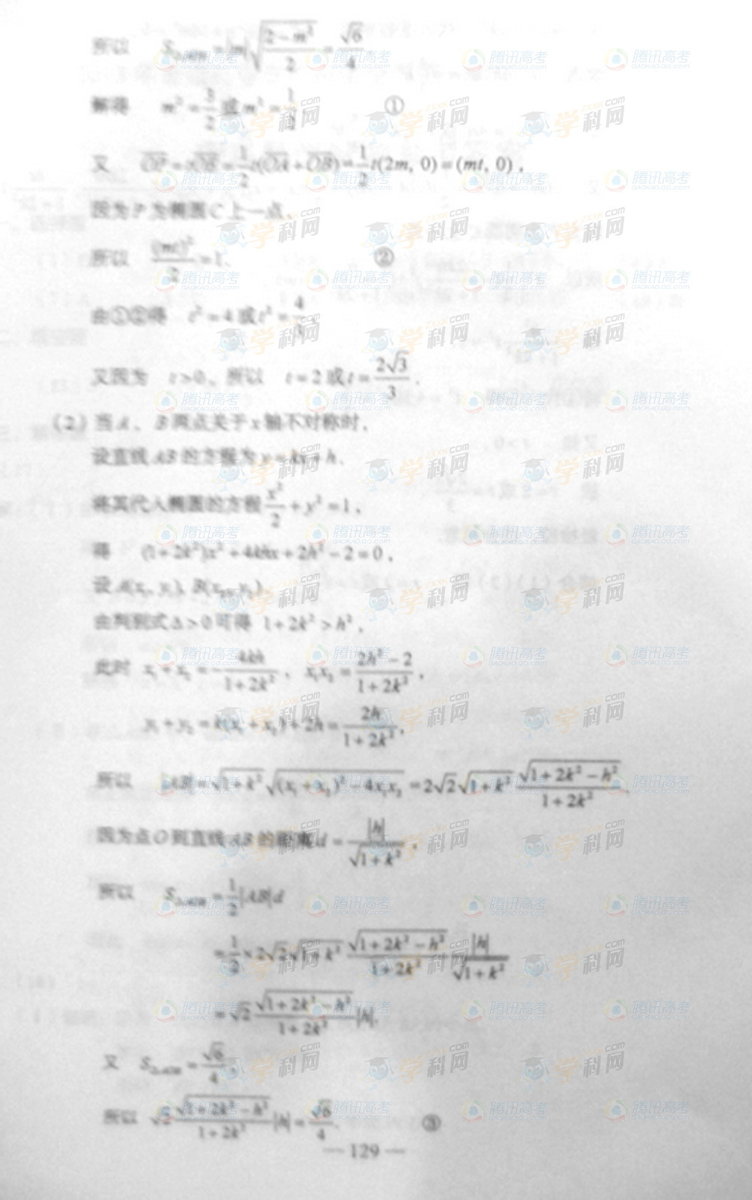 所以 S△AOB=|m|√((2-m²)/2)=√6/4
解得 m²=3/2或m²=1/2. ①
又 OP=tOE=1/2t(OA+OB)=1/2t(2m, 0)=(mt, 0),
因为P为椭圆C上一点,
所以 (mt)²/2=1. ②
由①②得 t²=4或t²=4/3.
又因为 t>0, 所以 t=2或t=2√3/3.
(2)当A、B两点关于x轴不对称时,
设直线AB的方程为y=kx+h.
将其代入椭圆的方程x²/2+y²=1,
得 (1+2k²)x²+4khx+2h²-2=0,
设A(x₁, y₁), B(x₂, y₂),
由判别式△>0可得 1+2k²>h²,
此时 x₁+x₂=-4kh/(1+2k²), x₁x₂=(2h²-2)/(1+2k²),
y₁+y₂=k(x₁+x₂)+2h=2h/(1+2k²),
所以 |AB|=√(1+k²)√((x₁+x₂)²-4x₁x₂)=2√2√(1+k²)√(1+2k²-h²)/(1+2k²).
因为点O到直线AB的距离d=|h|/√(1+k²),
所以 S△AOB=1/2|AB|d
=1/2×2√2√(1+k²)√(1+2k²-h²)/(1+2k²)|h|/√(1+k²)
=√2√(1+2k²-h²)/(1+2k²)|h|.
又 S△AOB=√6/4,
所以 √2√(1+2k²-h²)/(1+2k²)|h|=√6/4. ③
— 129 —
学科网
.com
腾讯高考
GAOKAO.QQ.COM